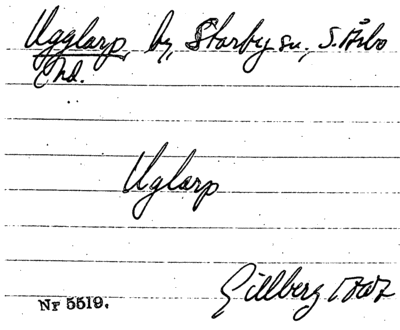 Ugglarp, by, Starby sn., S. Åsbo
hd.
Uglarp
Gillberg
Nr 5519.